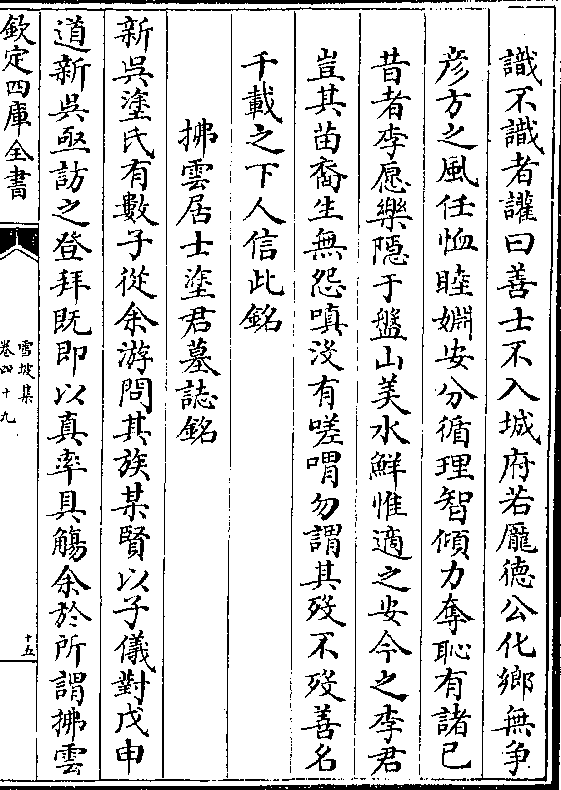 識不識者讙曰善士不入城府若龎德公化鄉無爭
彦方之風任恤睦婣安分循理智傾力奪恥有諸已
昔者李愿樂隠于盤山美水鮮惟適之安今之李君
豈其苗裔生無怨嗔沒有嗟喟勿謂其歿不歿善名
千載之下人信此銘
拂雲居士塗君墓誌銘
新吳塗氏有數子從余游問其族某賢以子儀對戊申
道新吳亟訪之登拜既即以真率具觴余於所謂拂雲
欽定四庫全書
雪坡集
卷四十九
十五